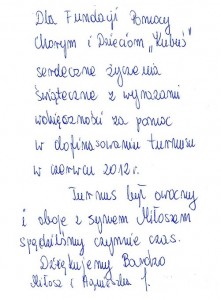 Dla Fundacji Pomocy
Chorym i Dzieciom „Kubuś"
serdeczne życzenia
świąteczne z wyrazami
wdzięczności za pomoc
w dofinansowaniu turnusu
w czerwcu 2012 r.
Turnus był owocny
i oboje z synem Miłoszem
spędziliśmy czynnie czas.
Dziękujemy Bardzo
Miłosz i Agnieszka J.